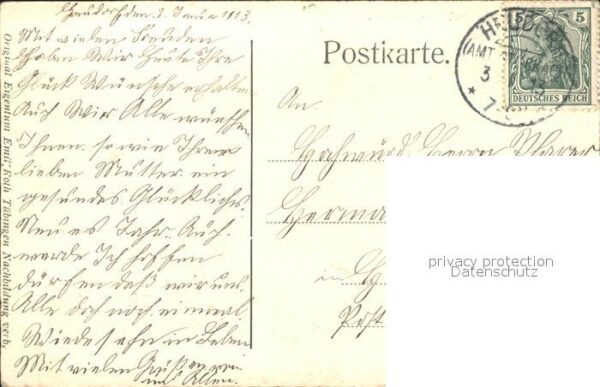 Heudorf den 2. Janua 1913.
Mit vielen Freuden
haben Wir heute Ihre
Glück Wünsche erhalten
Auch Wir Alle wünschen
Ihnen so wie Ihrer
lieben Mutter ein
gesundes Glückliches
Neues Jahr. Auch
werde Ich hoffen
dürfen daß wir uns
Alle doch noch einmal
Wiedersehn in Leben
Mit vielen Grüsen
Allen.
Original Eigentum Emil Roth Tübingen Nachbildung verb.
Postkarte.
HEUDORF
(AMT
3
DEUTSCHES REICH
5
An
Hochwürd. Herrn Pfarer
Herma
in
Post
privacy protection
Datenschutz